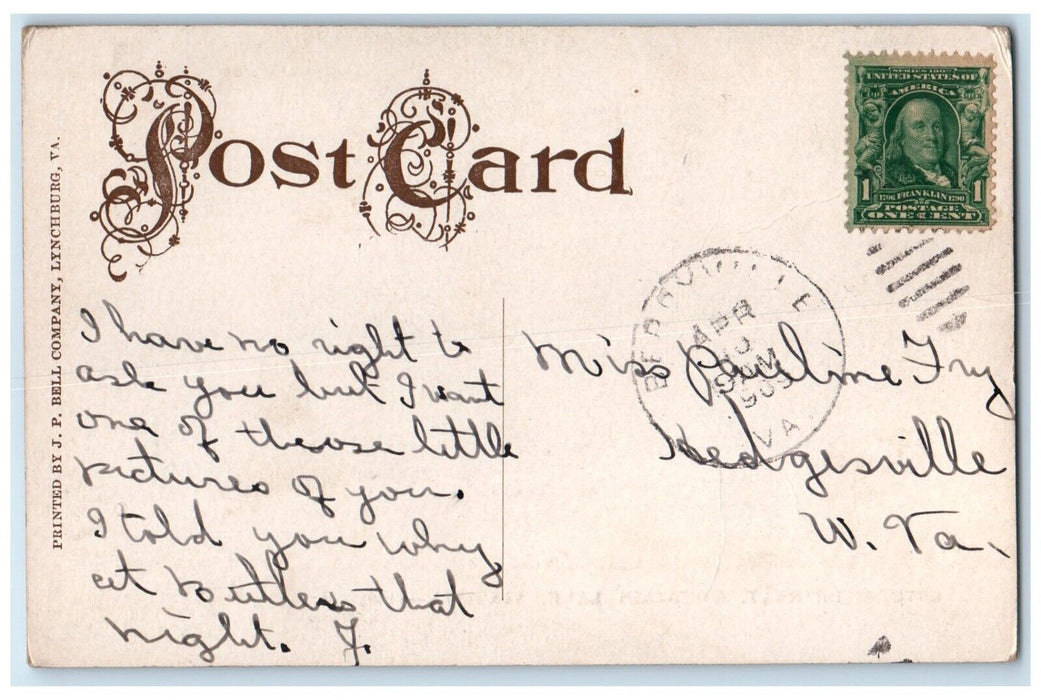 Post Card
PRINTED BY J. P. BELL COMPANY, LYNCHBURG, VA.
SERIES 1902
UNITED STATES OF
AMERICA
1 1
1706 FRANKLIN 1790
POSTAGE
ONE CENT
BERRYVILLE
APR
VA.
I have no right to
ask you but I want
one of those little
pictures of you.
I told you why
at that
night. F.
Miss Pauline Fry
Hedgesville
W. Va.